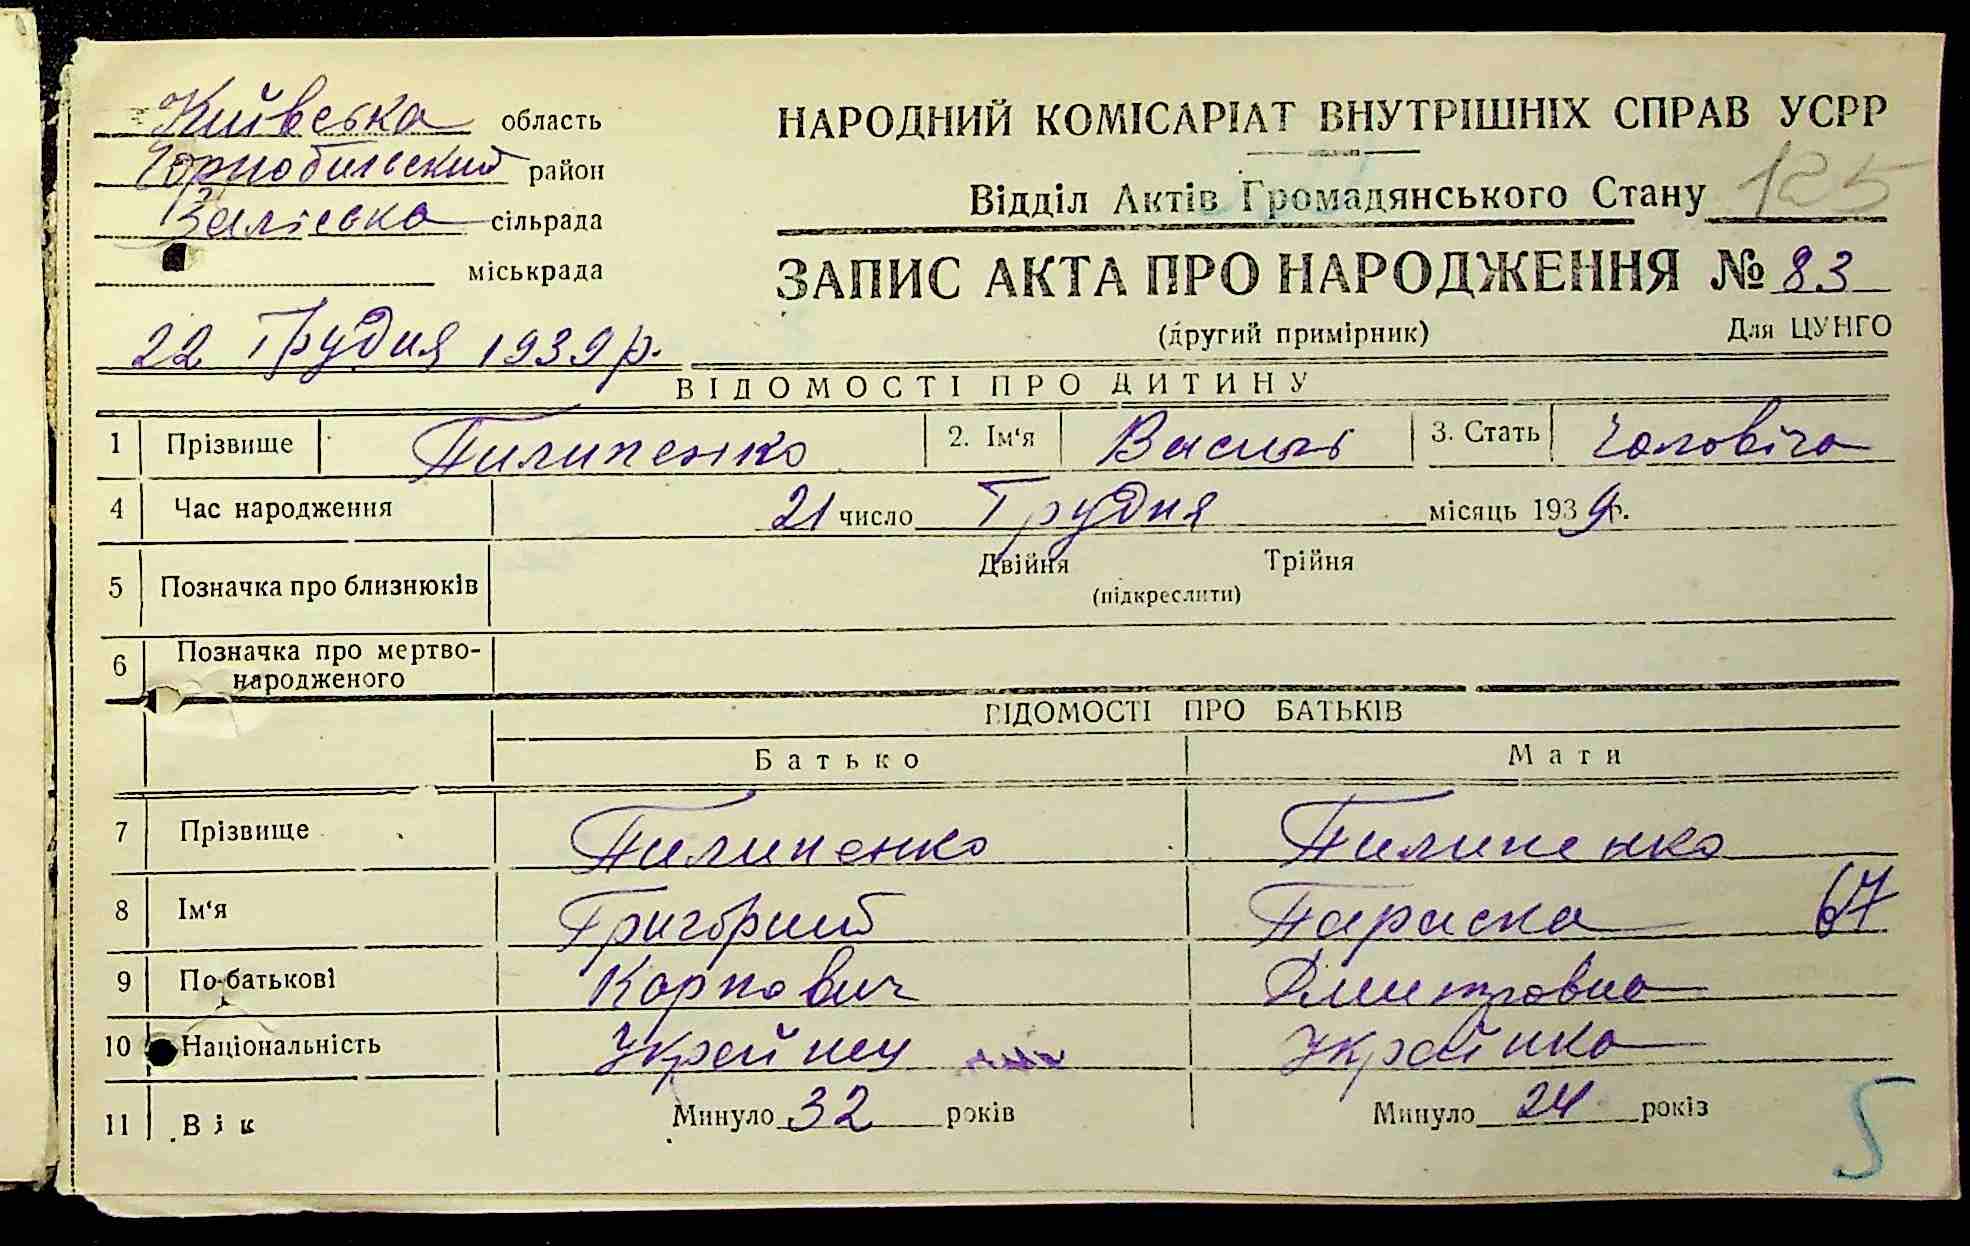 Київська область
Чорнобильский район
Заліська сільрада
міськрада
22 Грудня 1939 р.
НАРОДНИЙ КОМІСАРІАТ ВНУТРІШНІХ СПРАВ УСРР
Відділ Актів Громадянського Стану 125
ЗАПИС АКТА ПРО НАРОДЖЕННЯ № 83
(другий примірник) Для ЦУНГО
ВІДОМОСТІ ПРО ДИТИНУ
1 Прізвище Пилипенко 2. Ім‘я Василь 3. Стать Чоловіча
4 Час народження 21 число Грудня місяць 1939 р.
5 Позначка про близнюків Двійня Трійня
(підкреслити)
6 Позначка про мертво-
народженого
ВІДОМОСТІ ПРО БАТЬКІВ
Батько Мати
7 Прізвище Пилипенко Пилипенко
8 Ім‘я Григорий Параска 67
9 По-батькові Карпович Дмитровна
10 Національність Украйнец Украйнка
11 Вік Минуло 32 років Минуло 24 років
5